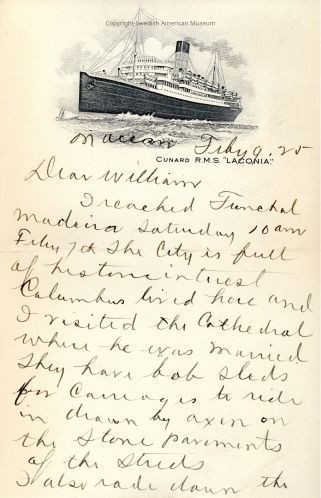 Copyright Swedish American Museum
Feby 9. 25
CUNARD R.M.S. "LACONIA."
Dear William
I reached Funchal
Madeira Saturday 10 am
Feby 7th The City is full
of historic interest
Columbus lived here and
I visited the Cathedral
where he was married
They have bob sleds
for Carriages to ride
in drawn by oxen on
the Stone pavements
of the Streets
I also rode down the